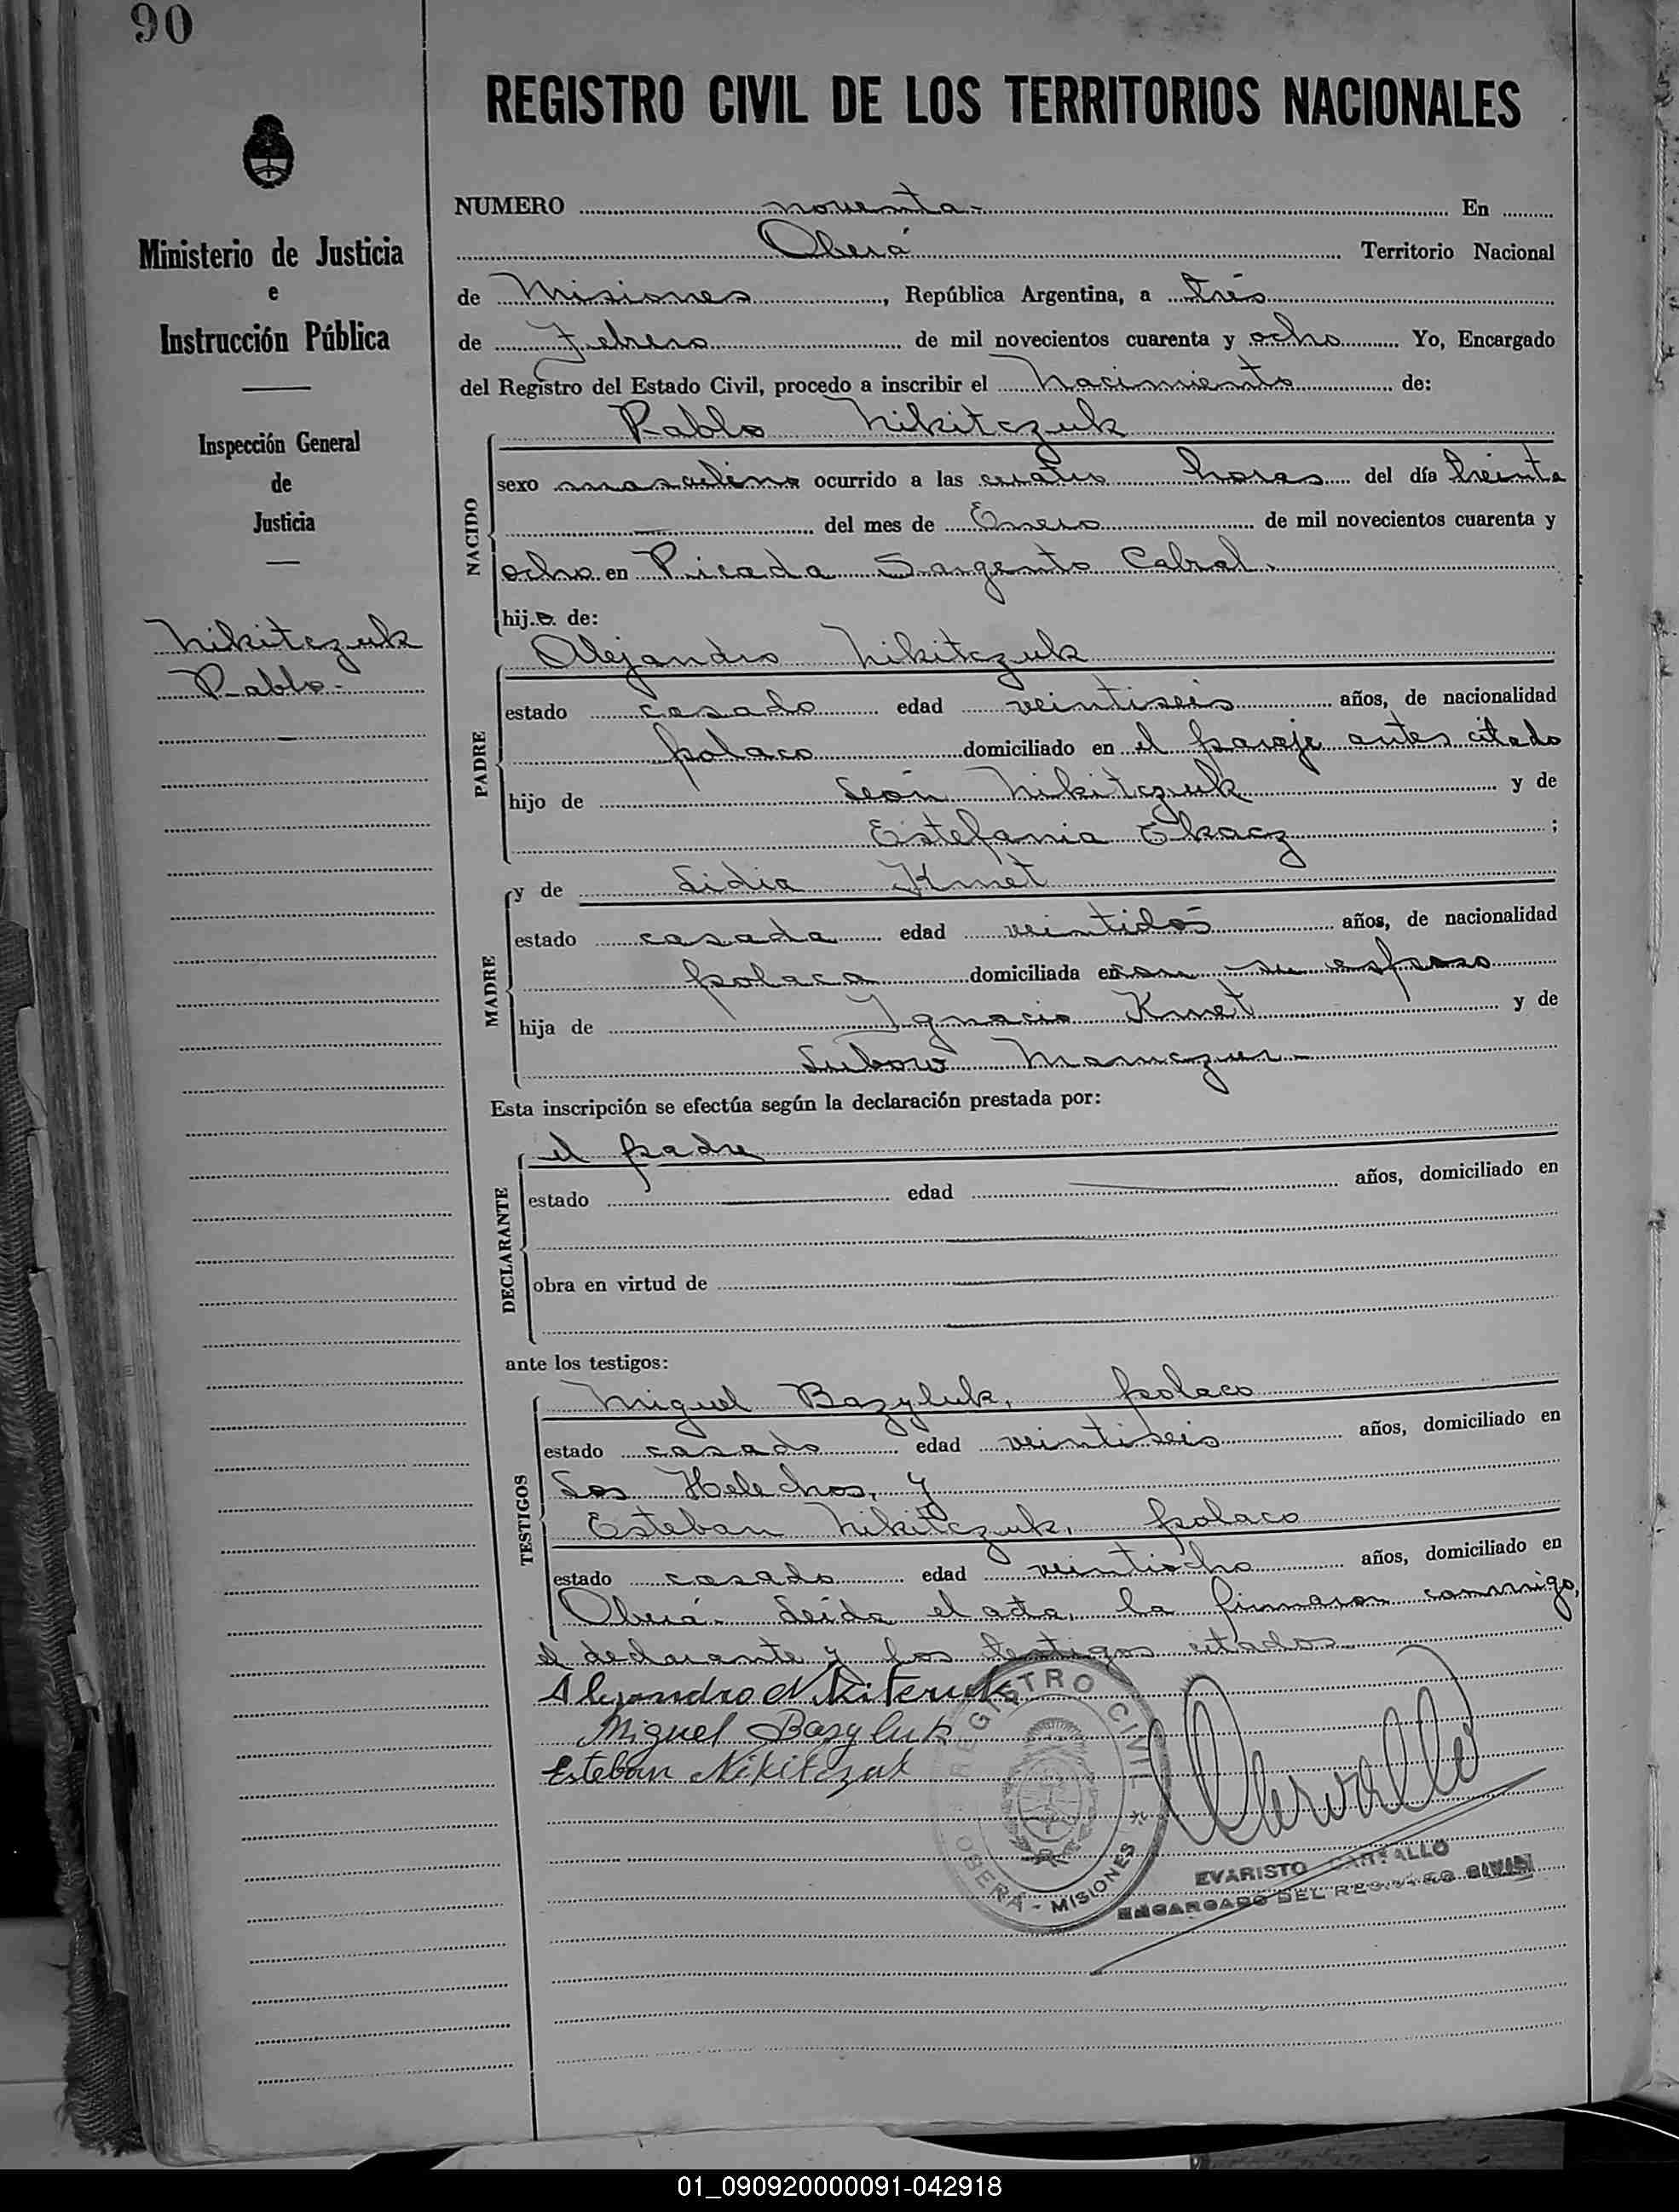 90
REGISTRO CIVIL DE LOS TERRITORIOS NACIONALES
Ministerio de Justicia
e
Instrucción Pública
Inspección General
de
Justicia
Nikitczuk
Pablo-
NUMERO noventa- En
Oberá Territorio Nacional
de Misiones, República Argentina, a trés
de Febrero de mil novecientos cuarenta y ocho Yo, Encargado
del Registro del Estado Civil, procedo a inscribir el nacimiento de:
NACIDO
Pablo Nikitczuk
sexo masculino ocurrido a las cuatro horas del día treinta
del mes de Enero de mil novecientos cuarenta y
ocho en Picada Sargento Cabral.
hijo de:
PADRE
Alejandro Nikitczuk
estado casado edad veintiseis años, de nacionalidad
polaco domiciliado en el paraje antes citado
hijo de León Nikitczuk y de
Estefania Tkacz;
MADRE
y de Lidia Kmet
estado casada edad veintidós años, de nacionalidad
polaca domiciliada en con su esposo
hija de Ignacio Kmet y de
Lubow
Esta inscripción se efectúa según la declaración prestada por:
DECLARANTE
el padre
estado edad años, domiciliado en
obra en virtud de
ante los testigos:
TESTIGOS
Miguel Bazyluk, polaco
estado casado edad veintiseis años, domiciliado en
Los Helechos, y
Esteban Nikitczuk, polaco
estado casado edad veintiocho años, domiciliado en
Oberá- Leida el acta, la firmaron conmigo,
el declarante y los testigos citados
Alejandro
Miguel Bazyluk
Esteban Nikitczuk
REGISTRO CIVIL
OBERÁ - MISIONES
EVARISTO CARVALLO
ENCARGADO DEL REGISTRO CIVIL
01_090920000091-042918